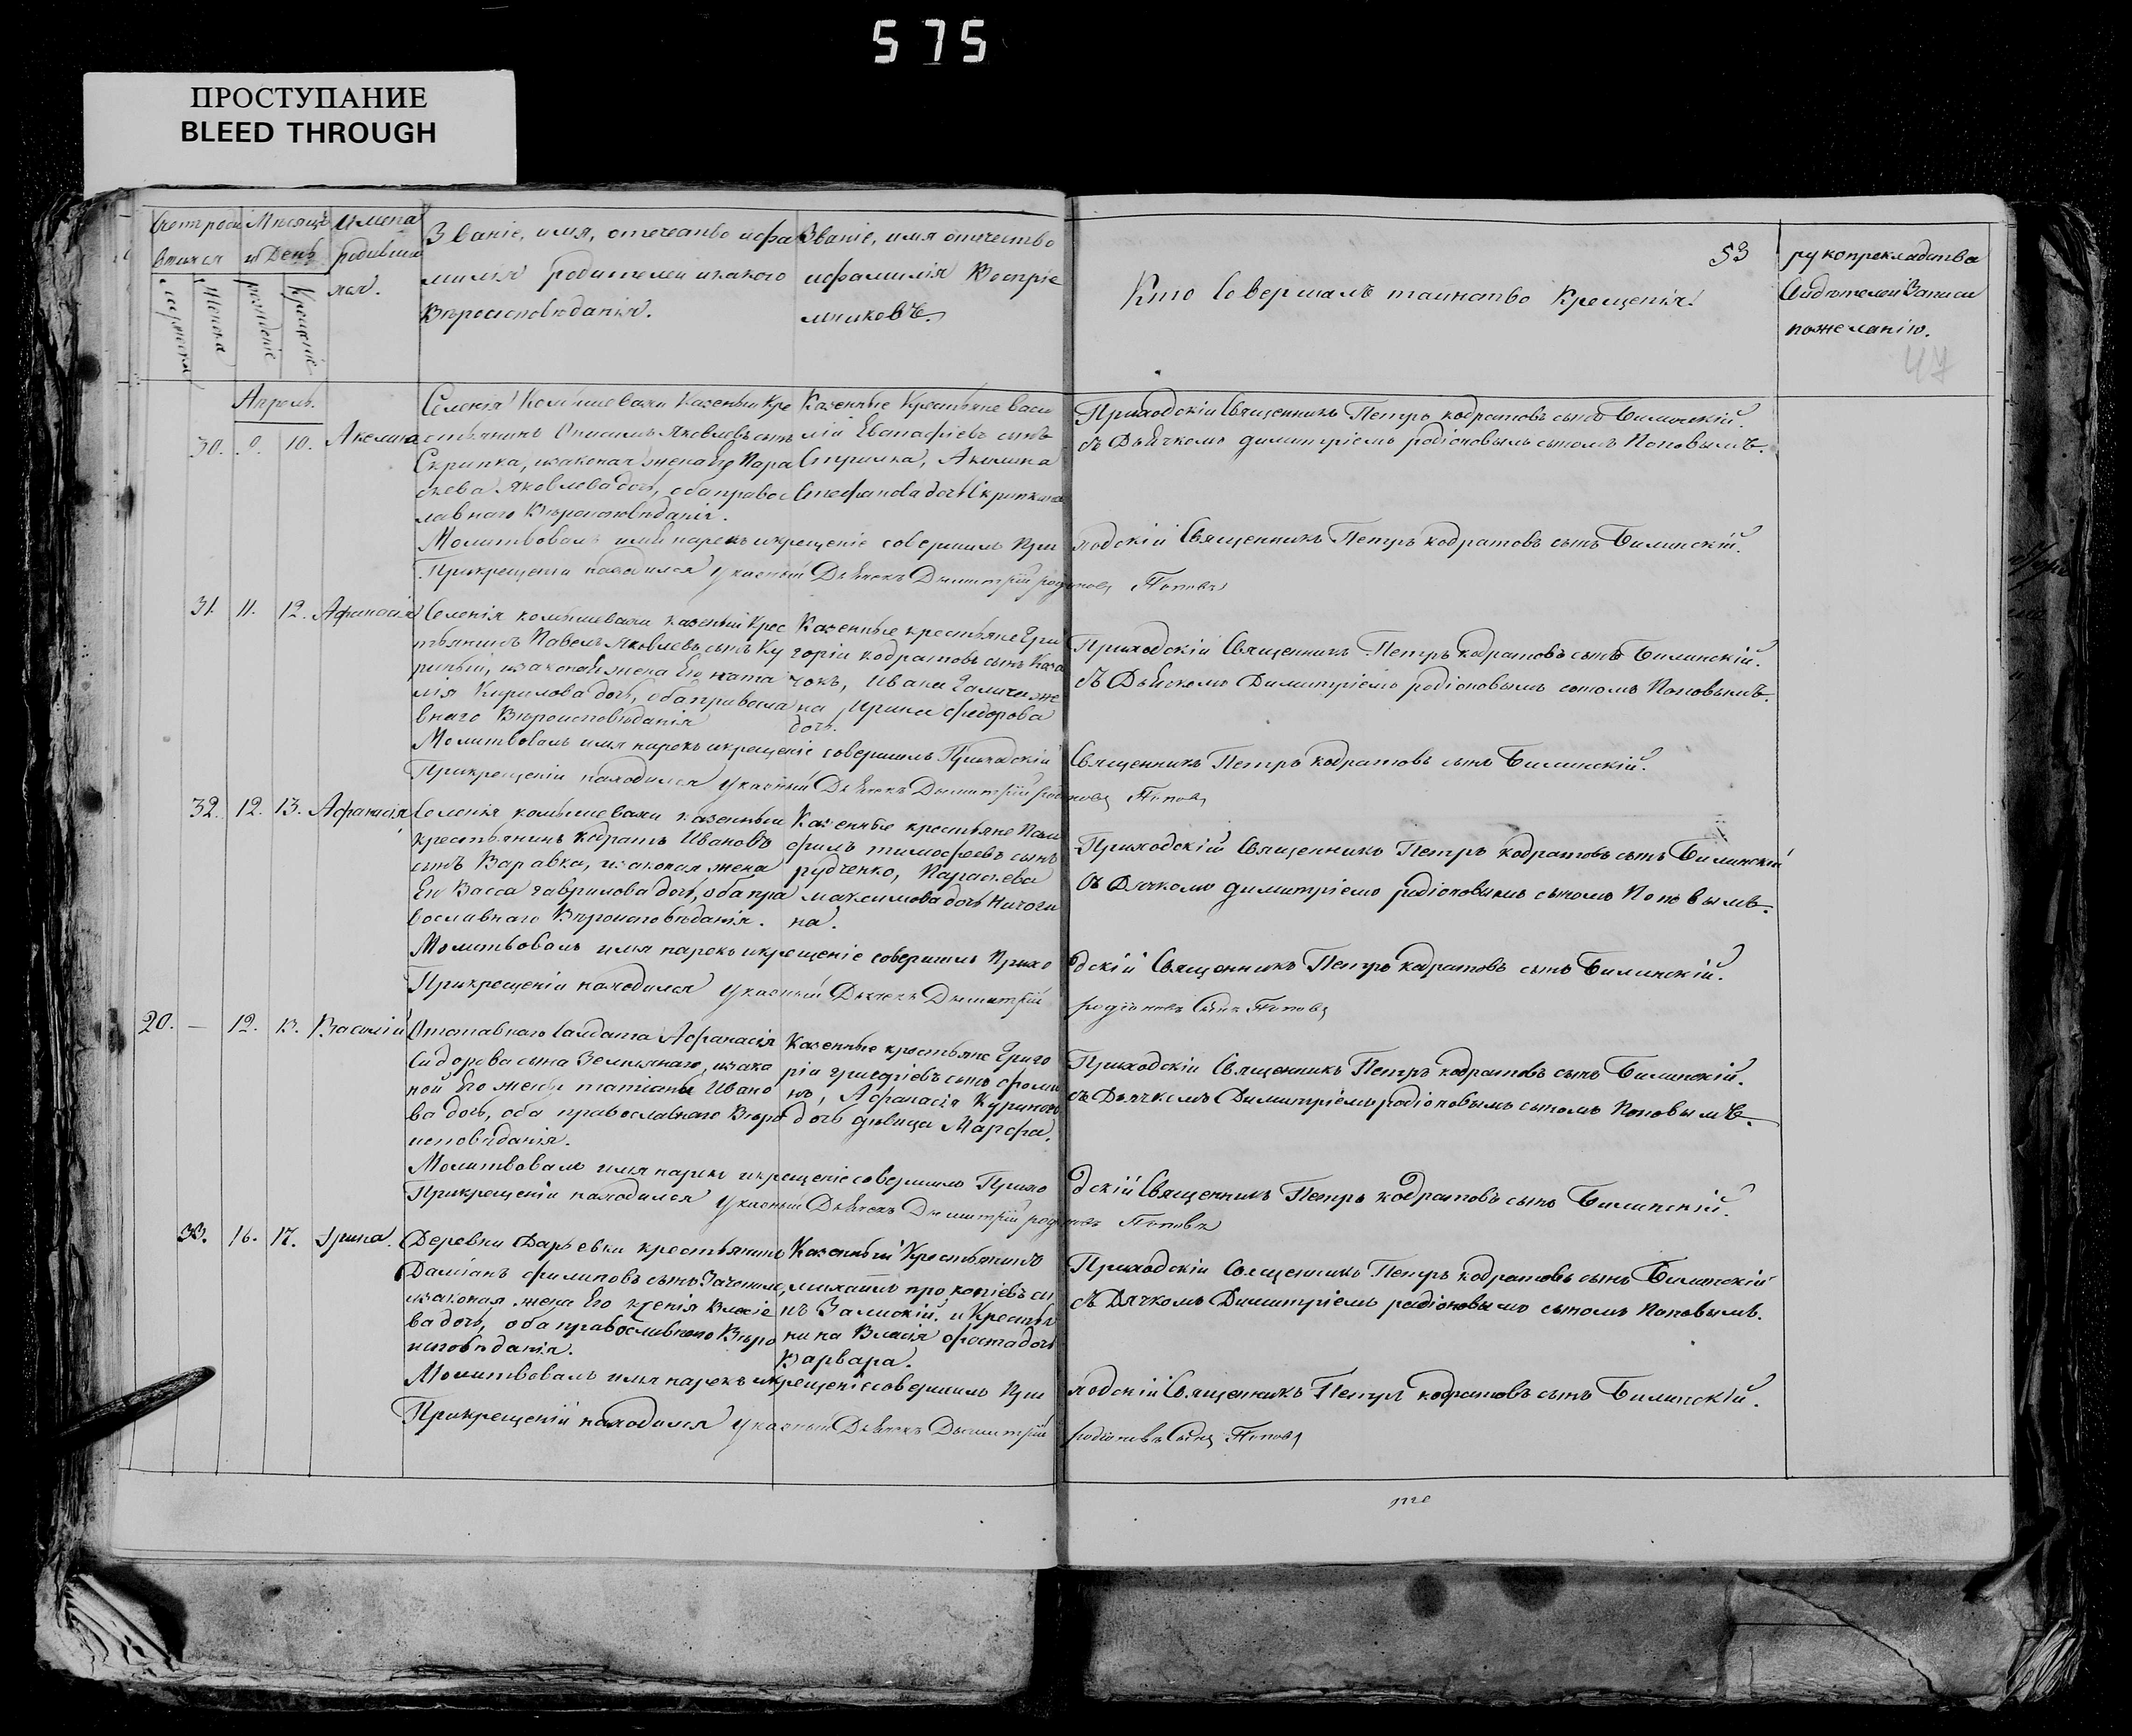 575
ПРОСТУПАНИЕ
BLEED THROUGH
Счетъ роди
вшихся
Мужеска
Женска
Мѣсяцъ
и День
рожденіе
Крещеніе
Имена
родивши
хся.
Званіе, имя, отечество ифа
милія родителей икакого
Вѣроисповѣданія.
Званіе, имя отечество
ифамилія Воспріе
мниковъ.
53
Кто Совершалъ таинство Крещенія.
рукоприкладство
Свидѣтелей Записи
пожеланію.
47
Апрель.
30. 9. 10. Акелина
Селенія Комышевахи Казеный Кре
стьянинъ Онисимъ Яковлевъ сынъ
Скрипка, изаконая жена Его Пара
скева Яковлева дочь, оба правос
лавнаго Вѣроисповѣданія.
Казенные Крестьяне Васи
лій Евстафіевъ сынъ
Акилина
Стефанова дочь Скрипкина
Приходскій Священникъ Петръ кодратовъ сынъ Билинскій.
съ Дьячкомъ димитріемъ родіоновымъ сыномъ Поповымъ.
Молитвовалъ имя нарекъ икрещеніе совершилъ При
ходскій Священникъ Петръ кодратовъ сынъ Билинскій.
Прикрещеніи находился указный Дьячекъ Димитрій родіоновъ Поповъ
31. 11. 12. Афанасія
Селенія комышевахи казеный Крес
тьянинъ Павелъ Яковлевъ сынъ Ку
риный, изаконая жена Его ната
лія Кирилова дочь, оба правосла
внаго Вѣроисповѣданія
Казенные крестьяне Гри
горій кодратовъ сынъ Каза
чокъ, Ивана Галича же
на Ирина федорова
дочь.
Приходскій Священникъ Петръ кодратовъ сынъ Билинскій.
съ Дьячкомъ Димитріемъ родіоновымъ сыномъ Поповымъ.
Молитвовалъ имя нарекъ икрещеніе совершилъ Приходскій
Священникъ Петръ кодратовъ сынъ Билинскій.
Прикрещеніи находился указный Дьячекъ Димитрій родіоновъ Поповъ
32. 12. 13. Афанасія
Селенія комышевахи казенный
крестьянинъ кодратъ Ивановъ
сынъ Варавка, изаконая жена
Его Васса гаврилова дочь, оба пра
вославнаго Вѣроисповѣданія.
Казенные крестьяне Пам
филъ тимофеевъ сынъ
рудченко, Параскева
максимова дочь Ничоги
на.
Приходскій Священникъ Петръ кодратовъ сынъ Билинскій
съ Дячкомъ димитріемъ родіоновымъ сыномъ Поповымъ.
Молитвовалъ имя нарекъ икрещеніе совершилъ Прихо
дскій Священникъ Петръ кодратовъ сынъ Билинскій.
Прикрещеніи находился указный Дьячекъ Димитрій
родіоновъ Сынъ Поповъ
20. — 12. 13. Василій
Отставнаго Салдата Афанасія
Сидорова сына Землянаго, изако
ной Его жены татіаны Ивано
ва дочь, оба православнаго Вѣро
исповѣданія.
Казенные крестьяне Григо
рій григоріевъ сынъ фоми
нъ, Афанасія Куринова
дочь дѣвица Марфа.
Приходскій Священникъ Петръ кодратовъ сынъ Билинскій.
съ Дьячкомъ Димитріемъ родіоновымъ сыномъ Поповымъ.
Молитвовалъ имя нарекъ икрещеніе совершилъ Прихо
дскій Священникъ Петръ кодратовъ сынъ Билинскій.
Прикрещеніи находился указный Дьячекъ Димитрій родіоновъ Поповъ
33. 16. 17. Ірина.
Деревни Дарьевки крестьянинъ
Даміанъ филиповъ сынъ
изаконая жена Его ксенія Власіе
ва дочь, оба православнаго Вѣро
исповѣданія.
Казенный Крестьянинъ
михаилъ прокопіевъ сы
нъ Залискій. и Крестья
нина Власія дочь
Варвара.
Приходскій Священникъ Петръ кодратовъ сынъ Билинскій
съ Дячкомъ Димитріемъ родіоновымъ сыномъ Поповымъ.
Молитвовалъ имя нарекъ икрещеніе совершилъ При
ходскій Священникъ Петръ кодратовъ сынъ Билинскій.
Прикрещеніи находился указный Дьячекъ Димитрій
родіоновъ Сынъ Поповъ